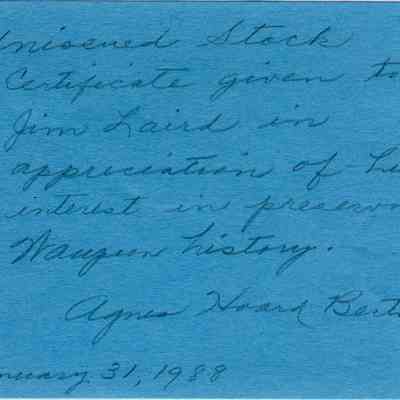 Unissued Stock
Certificate given to
Jim Laird in
appreciation of
interest in
Waupun history.
Agnes Hoard
January 31, 1988